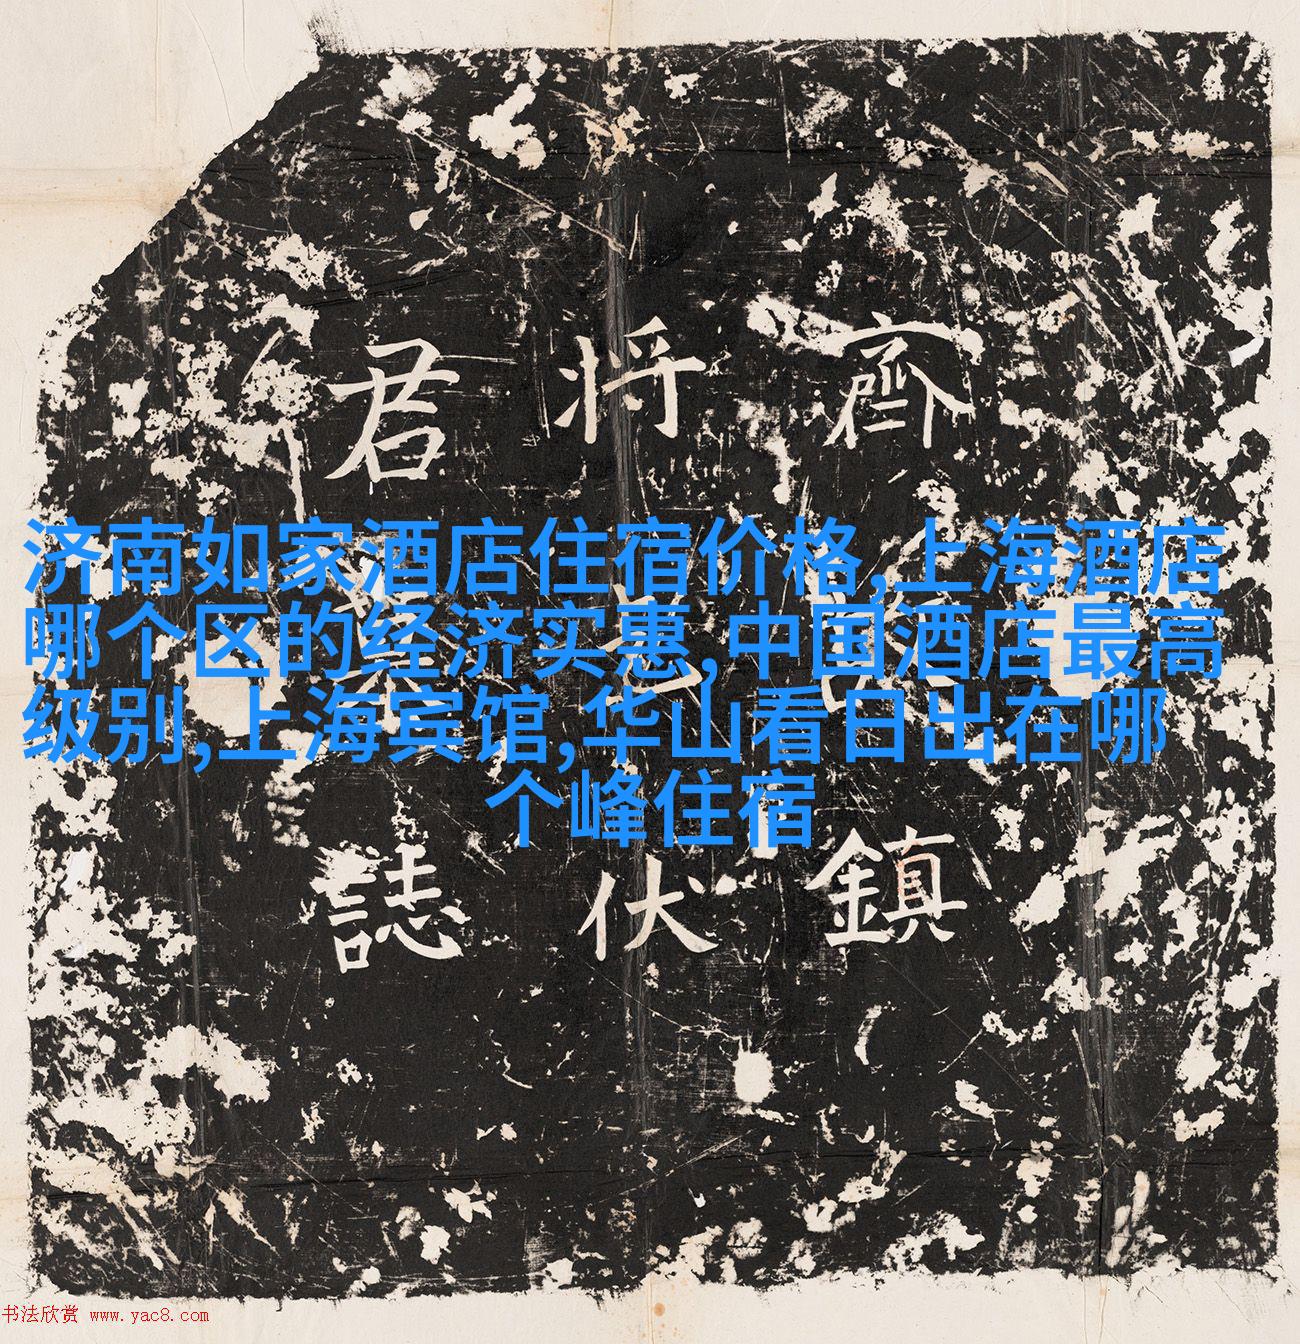 齊鎮
将伏
君誌
济南如家酒店住宿价格,上海酒店
哪个区的经济实惠,中国酒店最高
级别,上海宾馆,华山看日出在哪
个峰住宿
书法欣赏 www.yac8.com